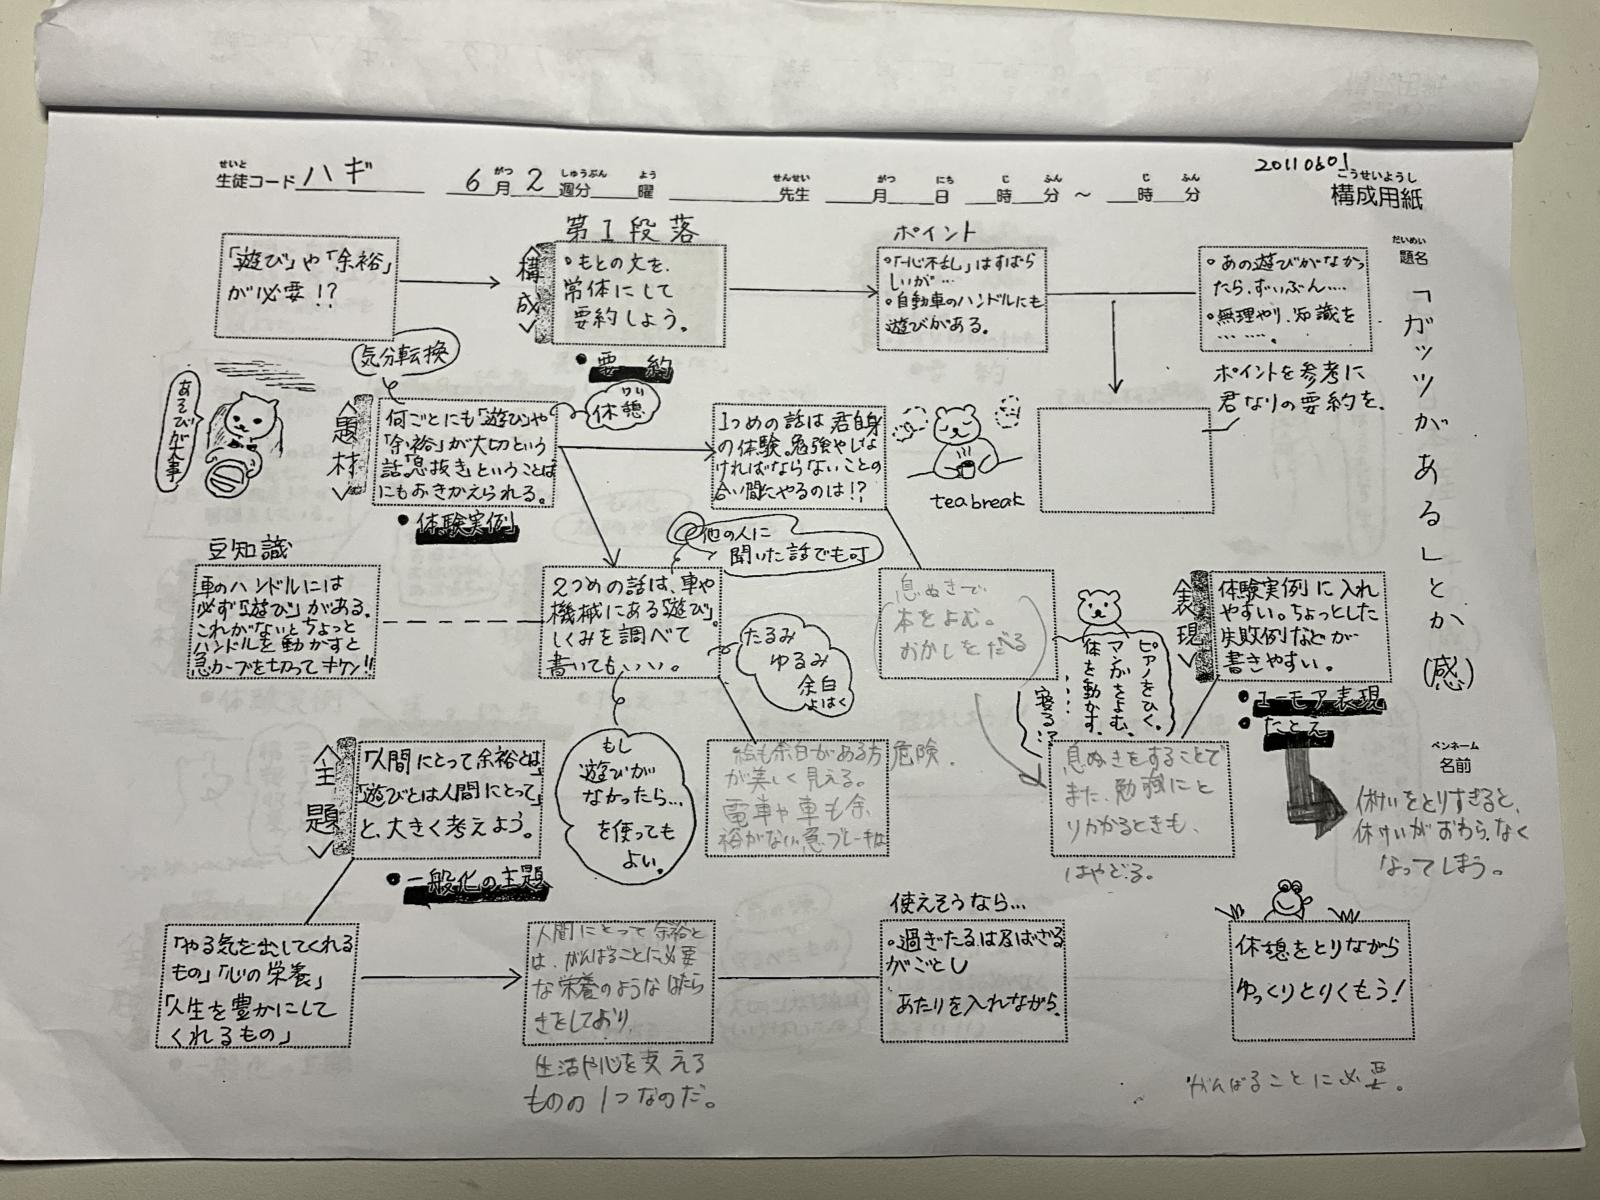 20110601
せいと
生徒コード ハギ
6月2週分 曜
がつ しゅうぶん よう
先生 月 日 時 分 ～ 時 分
せんせい がつ にち じ ふん じ ふん
こうせいようし
構成用紙
だいめい
題名
「ガッツがある」とか(感)
ペンネーム
名前
「遊び」や「余裕」
が必要!?
第1段落
＜構成＞
・もとの文を、
常体にして
要約しよう。
●要約
ポイント
・「一心不乱」はすばら
しいが…
・自動車のハンドルにも
遊びがある。
・あの遊びがなかっ
たら、ずいぶん……
・無理やり、知識を
………。
ポイントを参考に
君なりの要約を。
気分転換
あそびが大事
＜題材＞
何ごとにも「遊び」や
「余裕」が大切という
話。「息抜き」ということば
にもおきかえられる。
●体験実例
休憩
1つめの話は君自身
の体験。勉強やしな
ければならないことの
合い間にやるのは!?
tea break
他の人に
聞いた話でも可
豆知識
車のハンドルには
必ず「遊び」がある。
これがないとちょっと
ハンドルを動かすと
急カーブを切ってキケン!!
2つめの話は、車や
機械にある「遊び」。
しくみを調べて
書いてもいい。
たるみ
ゆるみ
余白
よはく
息ぬきで
本をよむ。
おかしをたべる
ピアノをひく。
マンガをよむ。
体を動かす。
……
寝る!?
＜表現＞
体験実例に入れ
やすい。ちょっとした
失敗例などが
書きやすい。
●ユーモア表現
●たとえ
休けいをとりすぎると、
休けいがおわらなく
なってしまう。
＜主題＞
「人間にとって余裕とは」
「遊びとは人間にとって」
と、大きく考えよう。
●一般化の主題
もし
遊びが
なかったら…
を使っても
よい。
絵も余白がある方
が美しく見える。
電車や車も余
裕がない急ブレーキは
危険.
息ぬきをすることで
また、勉強にと
りかかるときも、
はやどる。
「やる気を出してくれる
もの」「心の栄養」
「人生を豊かにして
くれるもの」
人間にとって余裕と
は、がんばることに必要
な栄養のようなはたら
きをしており、
生活や心を支える
ものの1つなのだ。
使えそうなら…
・過ぎたるは及ばざる
がごとし
あたりを入れながら、
休憩をとりながら
ゆっくりとりくもう!
がんばることに必要。